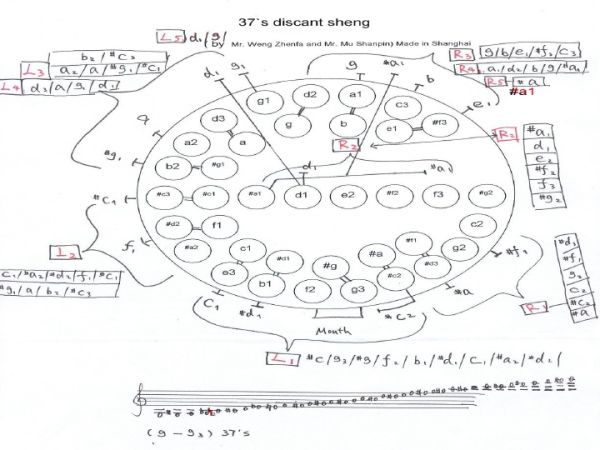 37`s discant sheng
L5 d₁/g/
by Mr. Weng Zhenfa and Mr. Mu Shanpin) Made in Shanghai
R3 g/b/e₁/#f₂/c₃
b₂/#c₃
L3 a₂/a/#g₁/#c₁
R4 a₁/d₂/b/g/#a₁
L4 d₃/a/g₁/d₁
R5 #a
#a1
d₁ g₁ g #a₁ b e₁
g1 d2 a1 c3
d3 g b e1 #f3
a a2 a
R2
R2 #a₁
d₁
e₂
#f₂
f₃
#g₂
#g₁ b2 #g1
d₁ #a₁
#c₁ #c3 #c1 #a1 d1 e2 #f2 f3 #g2
#d2 f1 c2
f₁ #a2 c1 #d1 #g #a #f1 g2 #f₁
L2
e3 b1 f2 g3 #c2 #d3 #a
c₁/#a₂/#d₂/f₁/#c₁
#g₁/a/b₂/#c₃
#d₁
#f₁
g₂
c₂
#c₂
#a
R1
c₁ #d₁ Month #c₂
L1 #c/g₂/#g/f₂/b₁/#d₁/c₁/#a₂/#d₂/
(g - g₃) 37's